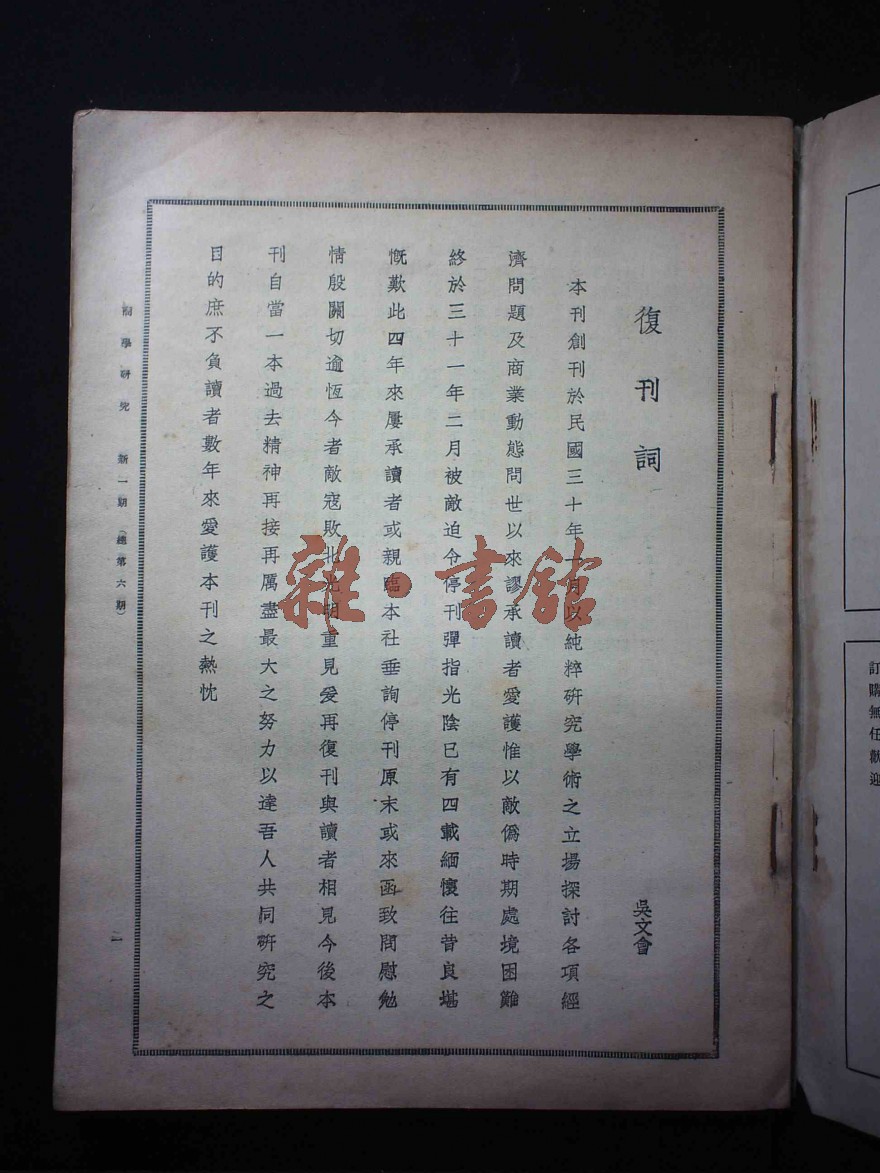 復刊詞
吳文會
本刊創刊於民國三十年一月以純粹研究學術之立場探討各項經
濟問題及商業動態問世以來謬承讀者愛護惟以敵僞時期處境困難
終於三十一年二月被敵迫令停刊彈指光陰已有四載緬懷往昔良堪
慨歎此四年來屢承讀者或親臨本社垂詢停刊原末或來函致問慰勉
情殷關切逾恆今者敵寇敗北光明重見爰再復刊與讀者相見今後本
刊自當一本過去精神再接再厲盡最大之努力以達吾人共同研究之
目的庶不負讀者數年來愛護本刊之熱忱
商學研究 新一期（總第六期）
二
訂購無任歡迎
雜·書館